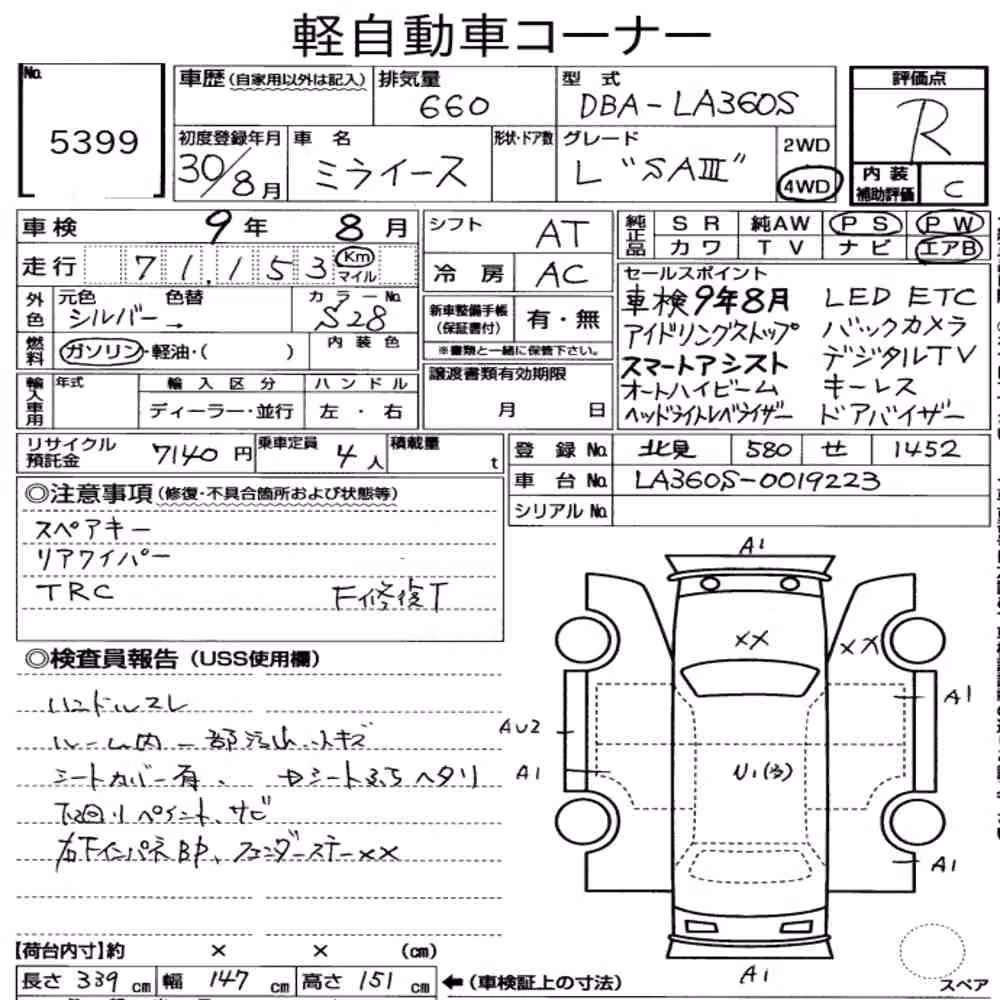 軽自動車コーナー
No. 5399
車歴(自家用以外は記入)
排気量 660
型式 DBA-LA360S
評価点 R
初度登録年月 30/8月
車名 ミライース
形状・ドア数
グレード L "SAⅢ"
2WD
4WD
内装補助評価 C
車検 9年 8月
走行 71,153 Km マイル
外色 元色 シルバー 色替 →
カラーNo. S28
燃料 ガソリン・軽油・( )
内装色
輸入車用 年式
輸入区分 ディーラー・並行
ハンドル 左・右
シフト AT
冷房 AC
新車整備手帳(保証書付) 有・無
※書類と一緒に保管下さい。
譲渡書類有効期限
月 日
純正品 SR 純AW PS PW
カワ TV ナビ エアB
セールスポイント
車検9年8月 LED ETC
アイドリングストップ バックカメラ
スマートアシスト デジタルTV
オートハイビーム キーレス
ヘッドライトレベライザー ドアバイザー
リサイクル預託金 7140円
乗車定員 4人
積載量 t
登録No. 北見 580 せ 1452
車台No. LA360S-0019223
シリアルNo.
◎注意事項(修復・不具合箇所および状態等)
スペアキー
リアワイパー
TRC F修復T
◎検査員報告(USS使用欄)
ハンドルスレ
ルーム内一部汚れ.キズ
シートカバー有、 Dシートふちヘタリ
下回りペイント、サビ
右下インパネBP、フェンダーステー××
A1
××
××
A1
AU2
A1
U1(多)
A1
A1
スペア
【荷台内寸】約 × × (cm)
長さ 339 cm 幅 147 cm 高さ 151 cm ←(車検証上の寸法)